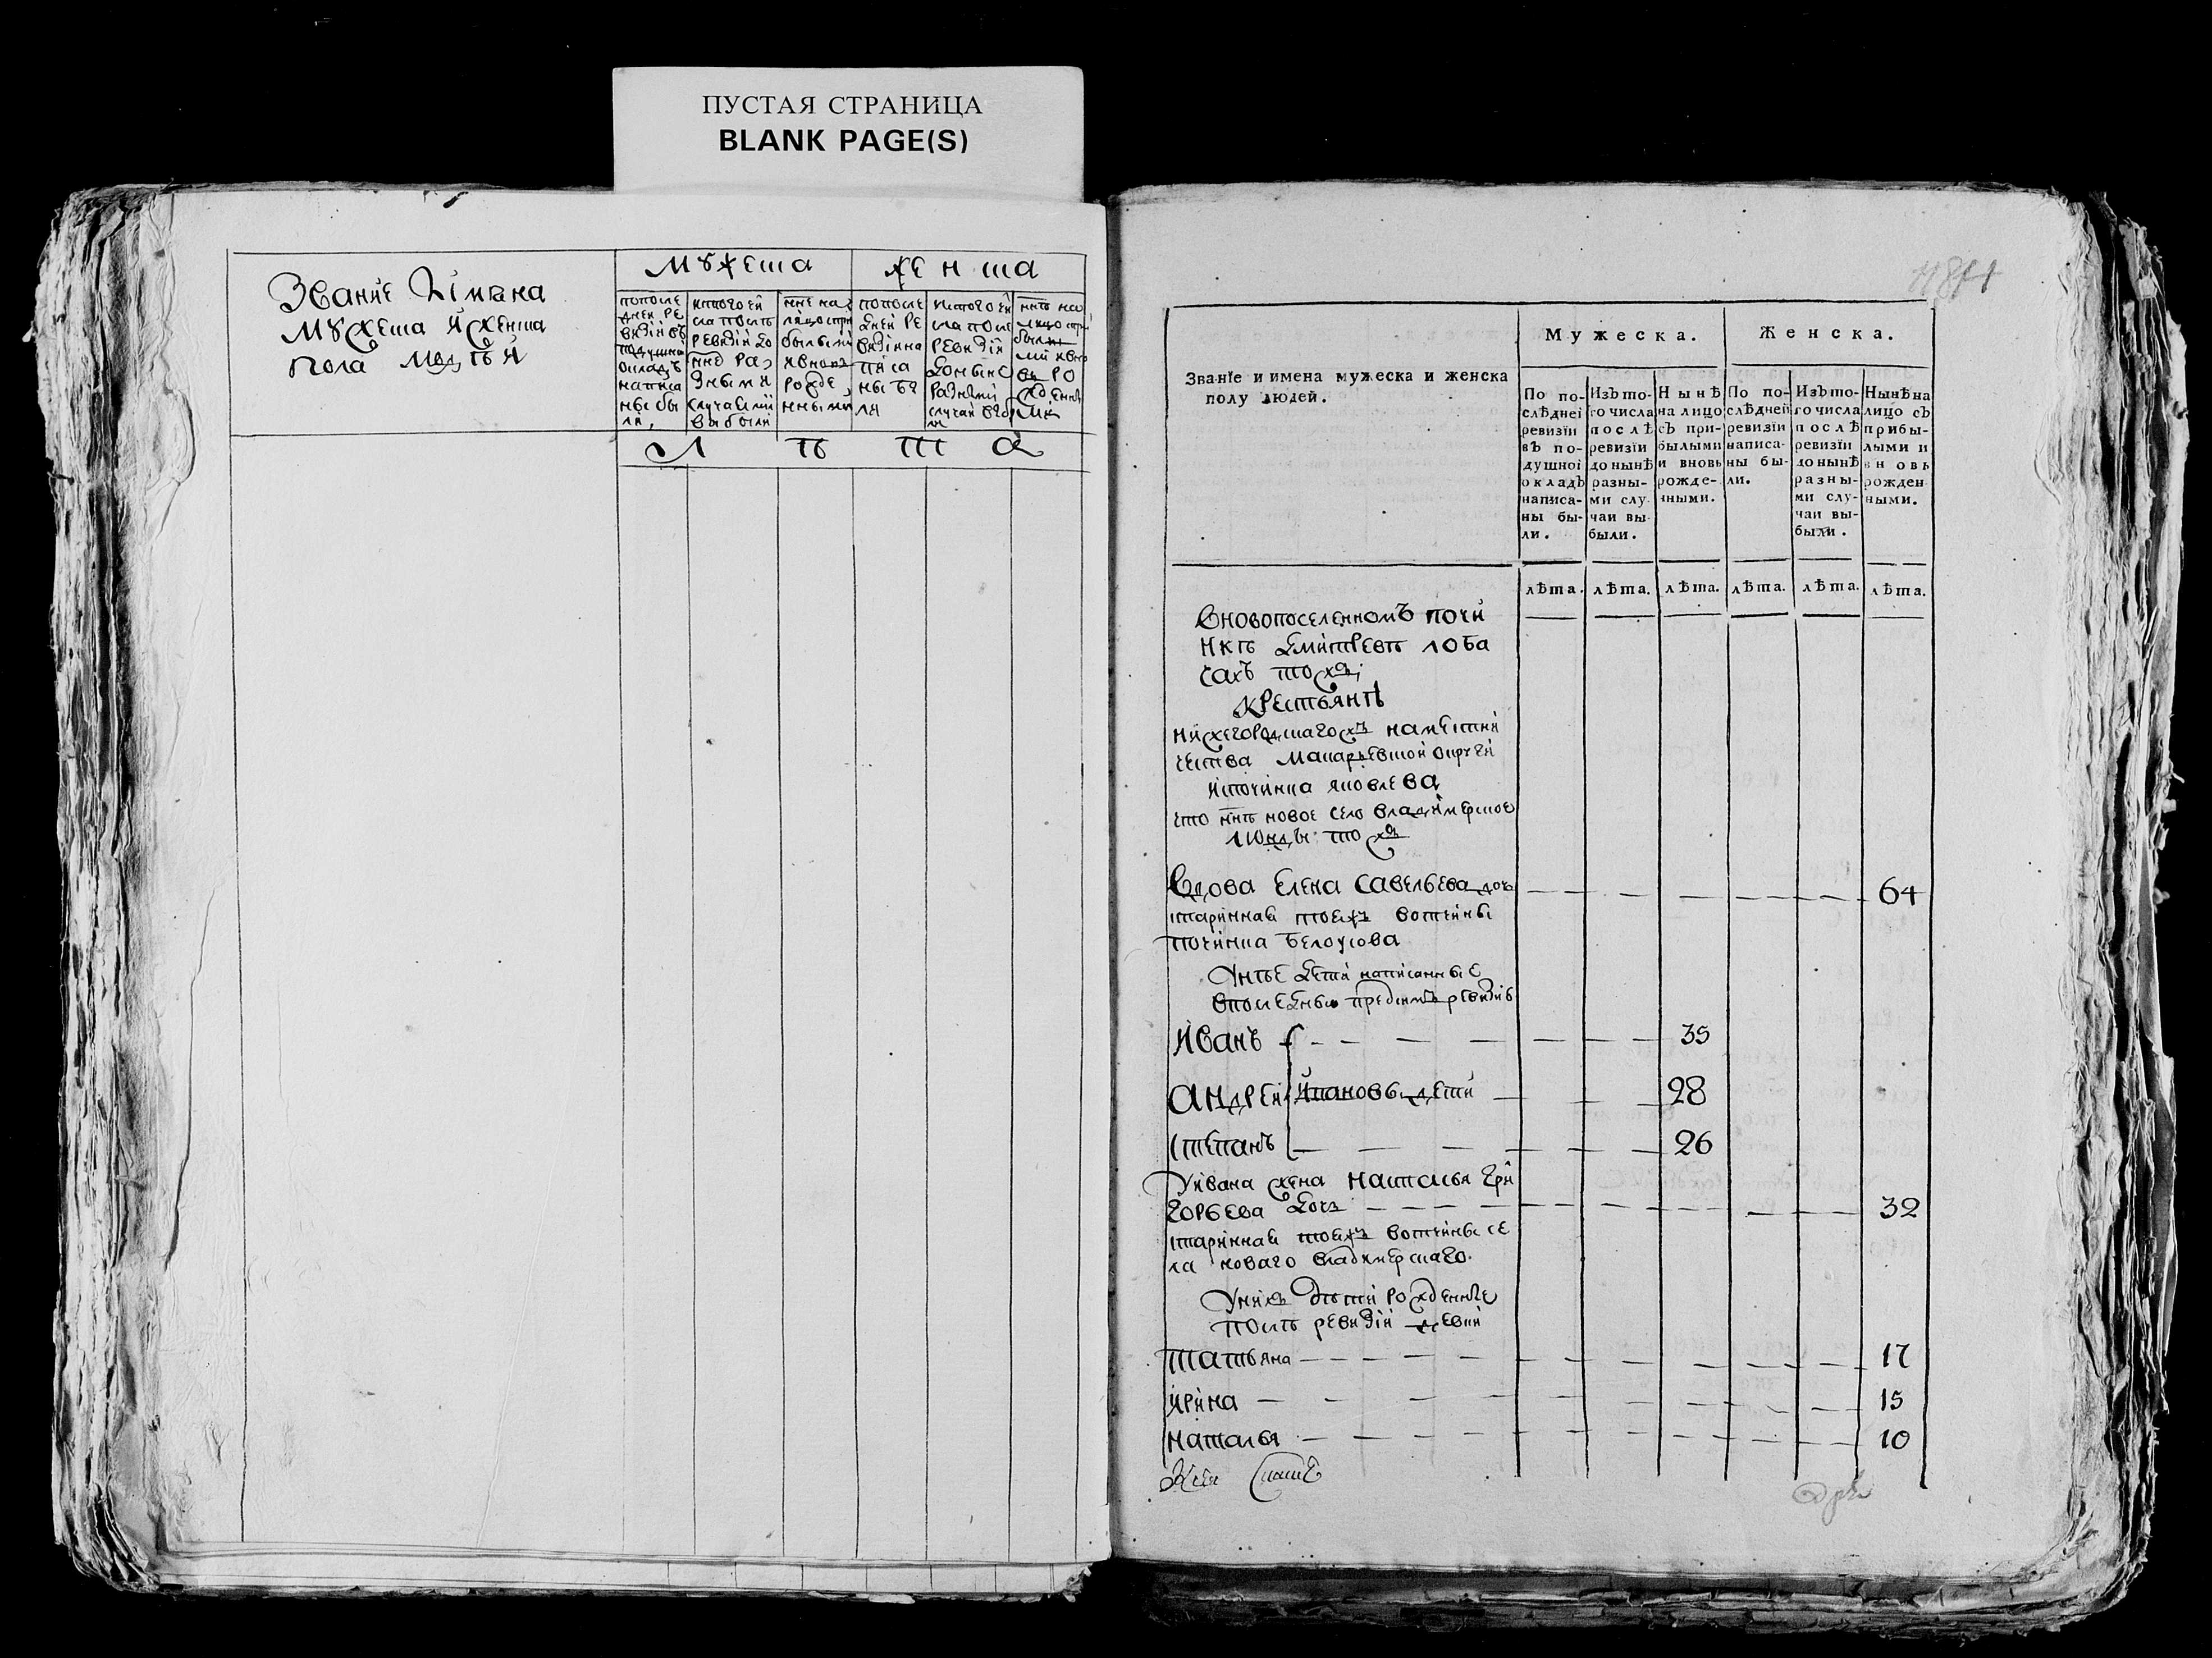 ПУСТАЯ СТРАНИЦА
BLANK PAGE(S)
Звание Їимѣна
мужеска ижѣнска
пола людѣй
Мужеска
женска
попосле
дней ре
визїи въ
подушно
окладъ
написа
ны бы
ли,
истогой
сла послѣ
ревизїи до
ннѣ раз
ными
случаеми
выбыли
ннѣ на
лицо спри
былыми
ивновь
рожде
нными
попосле
дней ре
визїи на
писа
ны бы
ли
истогой
сла посл
ревизїи
донынѣ
разными
случаи выб
ннѣ на
лицо спри
былы
ми ивно
вь ро
жденны
ми
Л ѣ т а
Званїе и имена мужеска и женска
полу людей.
Мужеска.
Женска.
По по-
слѣднеї
ревизїи
въ по-
душноі
окладъ
написа-
ны бы-
ли.
Изъ то-
го числа
послѣ
ревизїи
до нынѣ
разны-
ми слу-
чаи вы-
были.
Нынѣ
на лицо
съ при-
былыми
и вновь
рожде-
нными.
По по-
слѣдней
ревизїи
написа-
ны бы-
ли.
Изъ то-
го числа
послѣ
ревизїи
до нынѣ
разны-
ми слу-
чаи вы-
были.
Нынѣ на
лицо съ
прибы-
лыми и
вновь
рожден
ными.
лѣта. лѣта. лѣта. лѣта. лѣта. лѣта.
вновопоселенномъ почи
нкѣ дмитревѣ лоба
сахъ тожъ
крестьянѣ
нижегородскагожъ наместни
чества макарьевской округи
ис починка яковлева
что ннѣ новое село владимерское
люнды тожъ
Вдова Елена савельева дочь 64
старинная тоежъ вотчины
починка белоусова
Унѣе дети написанные
впоследнею предъ симъ ревизию
Иванъ 35
Андрей Степановы дети 28
степанъ 26
Уивана жена наталья гри
горьева дочь 32
старинная тоежъ вотчины се
ла новаго владимерскаго
Унихъ дѣти рожденные
послѣ ревизїи девки
татьяна 17
ирина 15
наталья 10